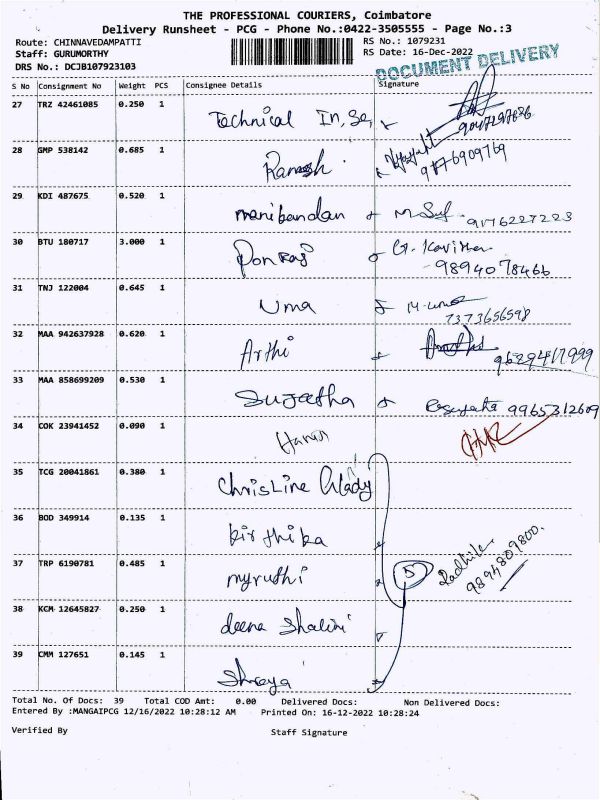 THE PROFESSIONAL COURIERS, Coimbatore
Delivery Runsheet - PCG - Phone No.:0422-3505555 - Page No.:3
Route: CHINNAVEDAMPATTI RS No.: 1079231
Staff: GURUMORTHY RS Date: 16-Dec-2022
DRS No.: DCJB107923103 DOCUMENT DELIVERY
S No Consignment No Weight PCS Consignee Details Signature
27 TRZ 42461085 0.250 1 Technical
28 GMP 538142 0.685 1 Ramesh
9176909769
29 KDI 487675 0.520 1 manibandan 9176227223
30 BTU 180717 3.000 1 Ponraj G. Kavitha
9894078466
31 TNJ 122004 0.645 1 Uma M-uma
7373656598
32 MAA 942637928 0.620 1 Arthi
33 MAA 858699209 0.530 1 Sujatha 9965312609
34 COK 23941452 0.090 1
35 TCG 20041861 0.380 1 Christine Glady
36 BOD 349914 0.135 1 kirthika
37 TRP 6190781 0.485 1 myruthi 5 Radhika
9894809800.
38 KCM 12645827 0.250 1 deena Shalini
39 CMM 127651 0.145 1 Shreya
Total No. Of Docs: 39 Total COD Amt: 0.00 Delivered Docs: Non Delivered Docs:
Entered By :MANGAIPCG 12/16/2022 10:28:12 AM Printed On: 16-12-2022 10:28:24
Verified By Staff Signature